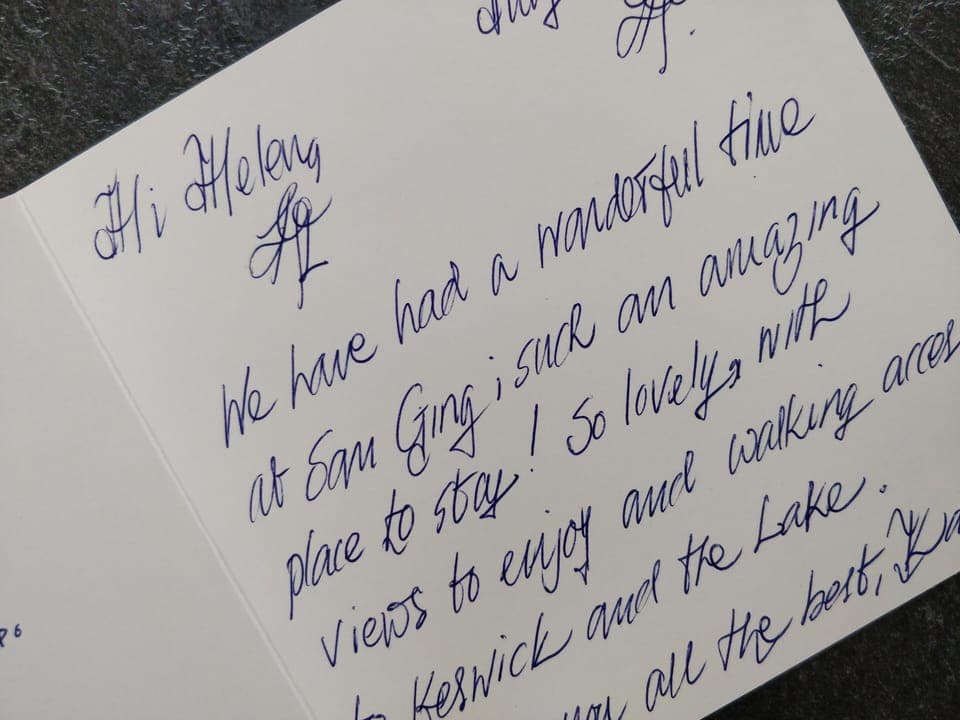 Hi Helena
We have had a wonderful time
at San Ging; such an amazing
place to stay! So lovely, with
views to enjoy and walking
to Keswick and the Lake.
you all the best,